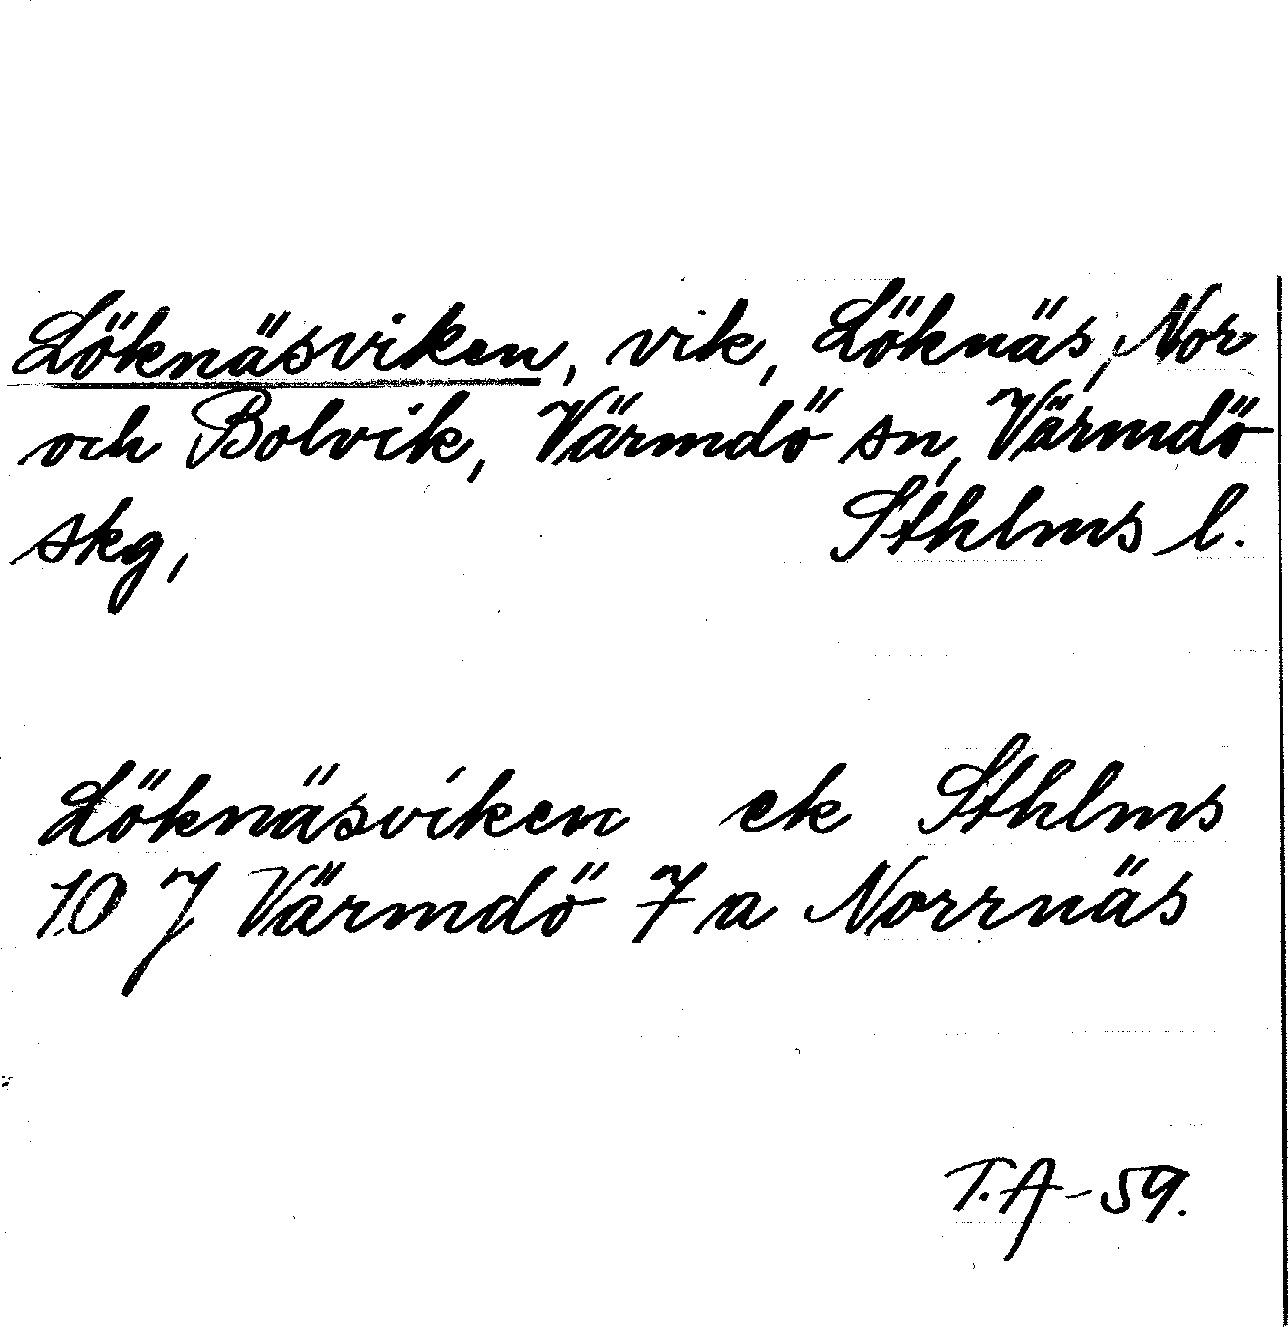 Löknäsviken, vik, Löknäs, Nor
och Bolvik, Värmdö sn, Värmdö
skg, Sthlms l.
Löknäsviken ek Sthlms
10 J Värmdö 7 a Norrnäs
T.A-59.